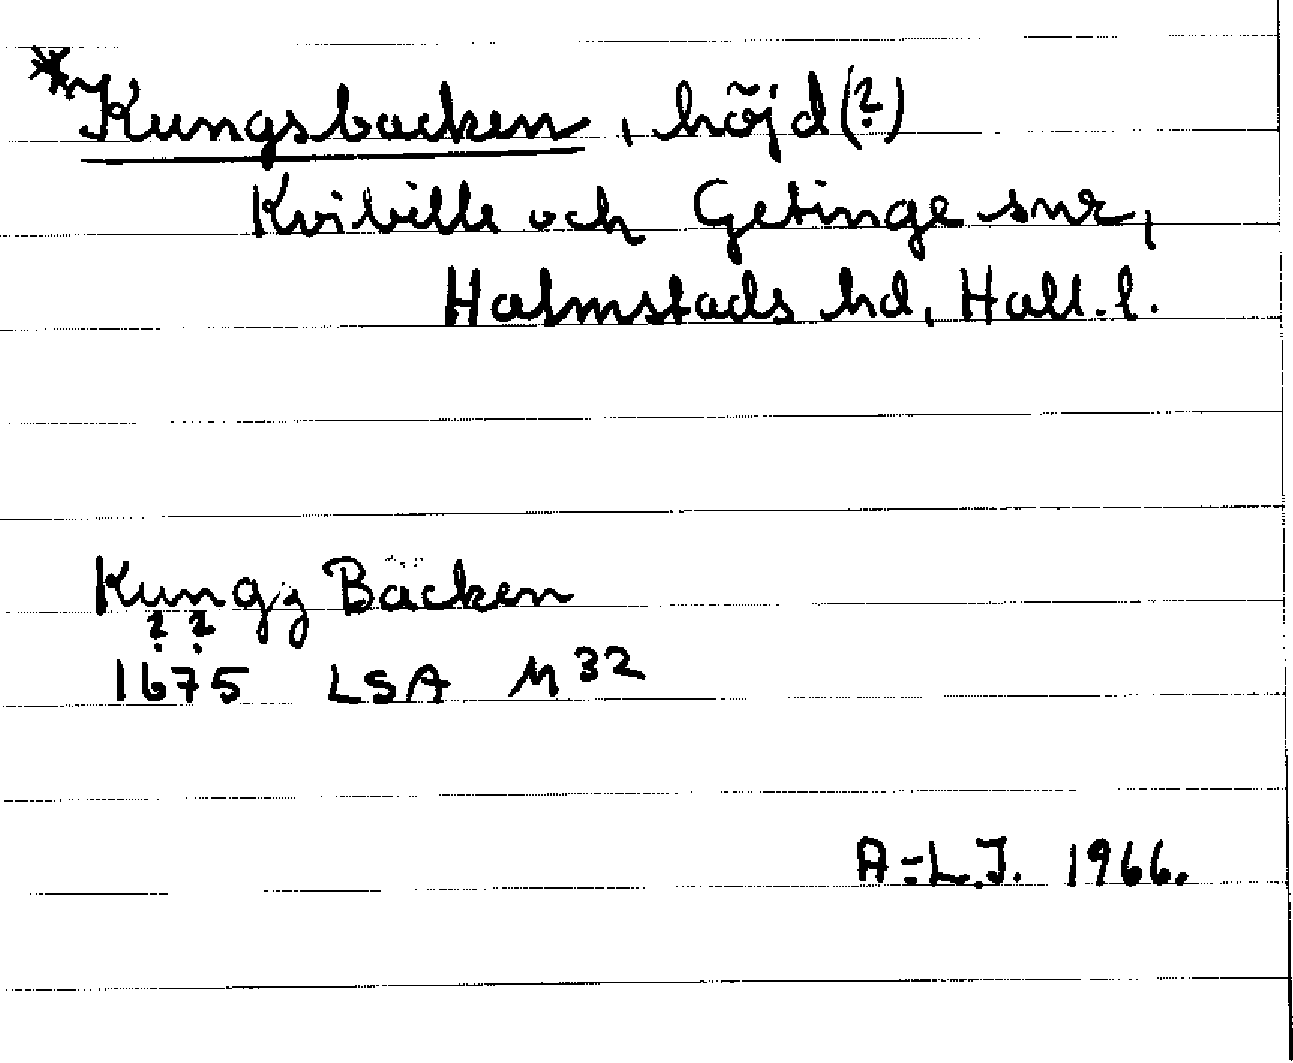 *Kungsbacken, höjd(?)
Kvibille och Getinge snr,
Halmstads hd, Hall. l.
Kungz Backen
? ?
1675 LSA M 32
A-L.J. 1966.